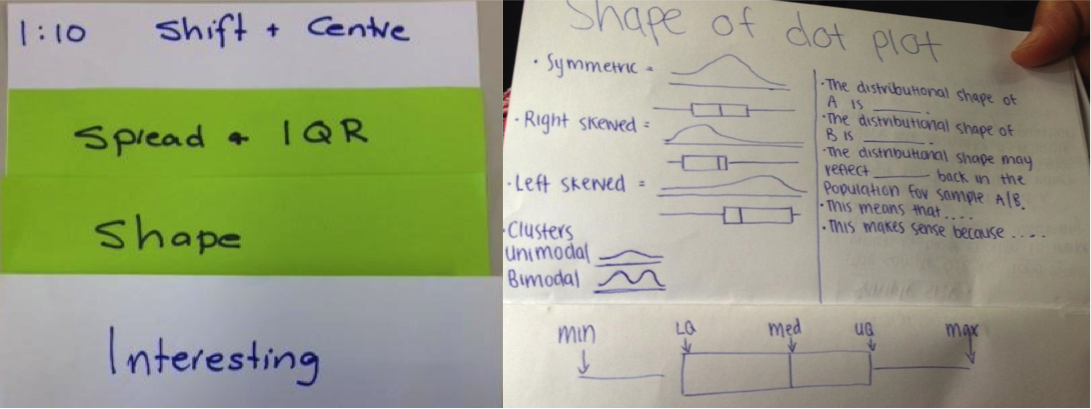 1:10 Shift + Centre
Spread + IQR
Shape
Interesting
Shape of dot plot
· Symmetric =
· Right skewed =
· Left skewed =
· Clusters
Unimodal
Bimodal
· The distributional shape of
A is ______.
· The distributional shape of
B is ______.
· The distributional shape may
reflect ______ back in the
population for sample A/B.
· This means that ....
· This makes sense because ....
min LQ med UQ max